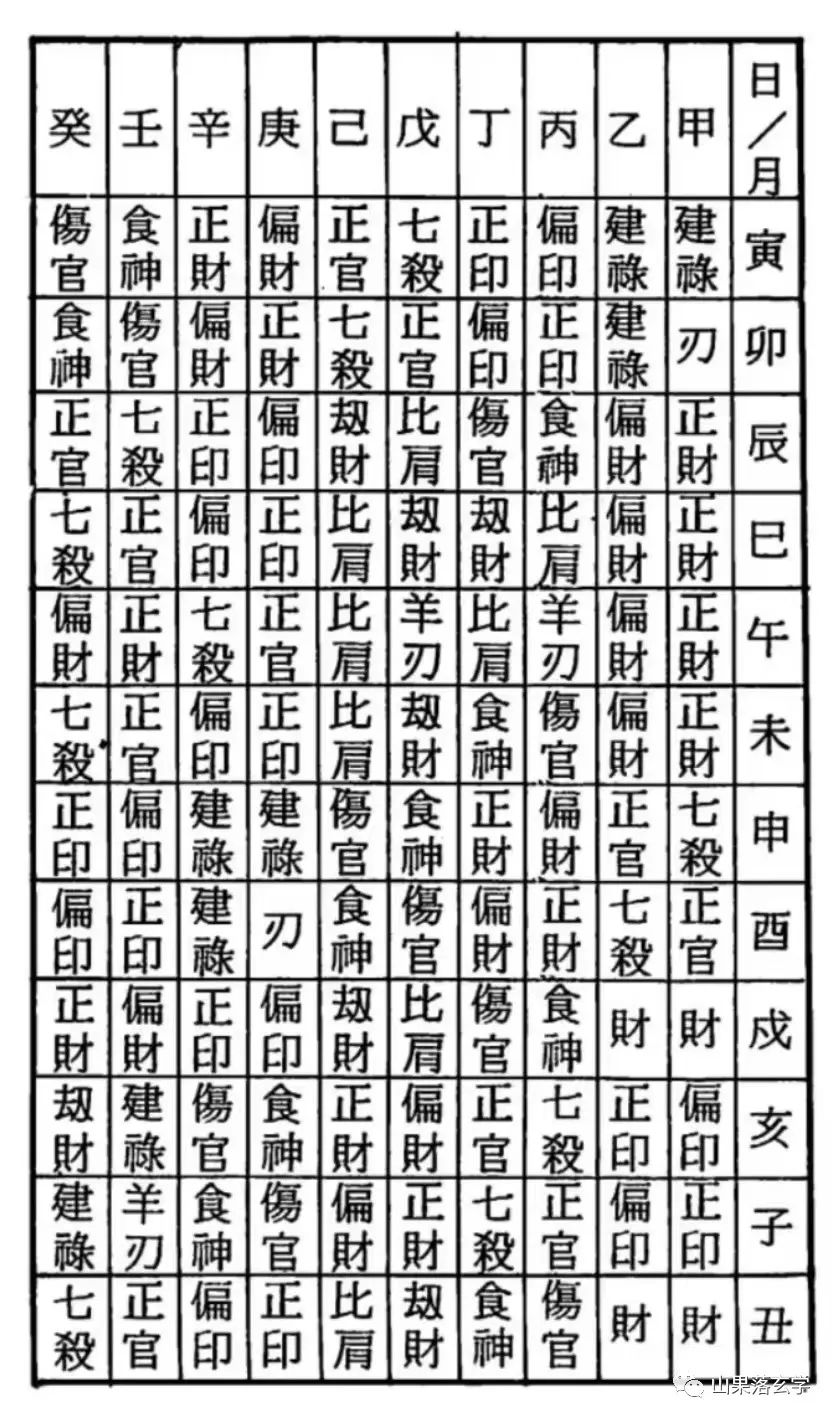 日/月 甲 乙 丙 丁 戊 己 庚 辛 壬 癸
寅 建祿 建祿 偏印 正印 七殺 正官 偏財 正財 食神 傷官
卯 刃 建祿 正印 偏印 正官 七殺 正財 偏財 傷官 食神
辰 正財 偏財 食神 傷官 比肩 劫財 偏印 正印 七殺 正官
巳 正財 偏財 比肩 劫財 劫財 比肩 正印 偏印 正官 七殺
午 正財 偏財 羊刃 比肩 羊刃 比肩 正官 七殺 正財 偏財
未 正財 偏財 傷官 食神 劫財 比肩 正印 偏印 正官 七殺
申 七殺 正官 偏財 正財 食神 傷官 建祿 建祿 偏印 正印
酉 正官 七殺 正財 偏財 傷官 食神 刃 建祿 正印 偏印
戌 財 財 食神 傷官 比肩 劫財 偏印 正印 偏財 正財
亥 偏印 正印 七殺 正官 偏財 正財 食神 傷官 建祿 劫財
子 正印 偏印 正官 七殺 正財 偏財 傷官 食神 羊刃 建祿
丑 財 財 傷官 食神 劫財 比肩 正印 偏印 正官 七殺
山果落玄学